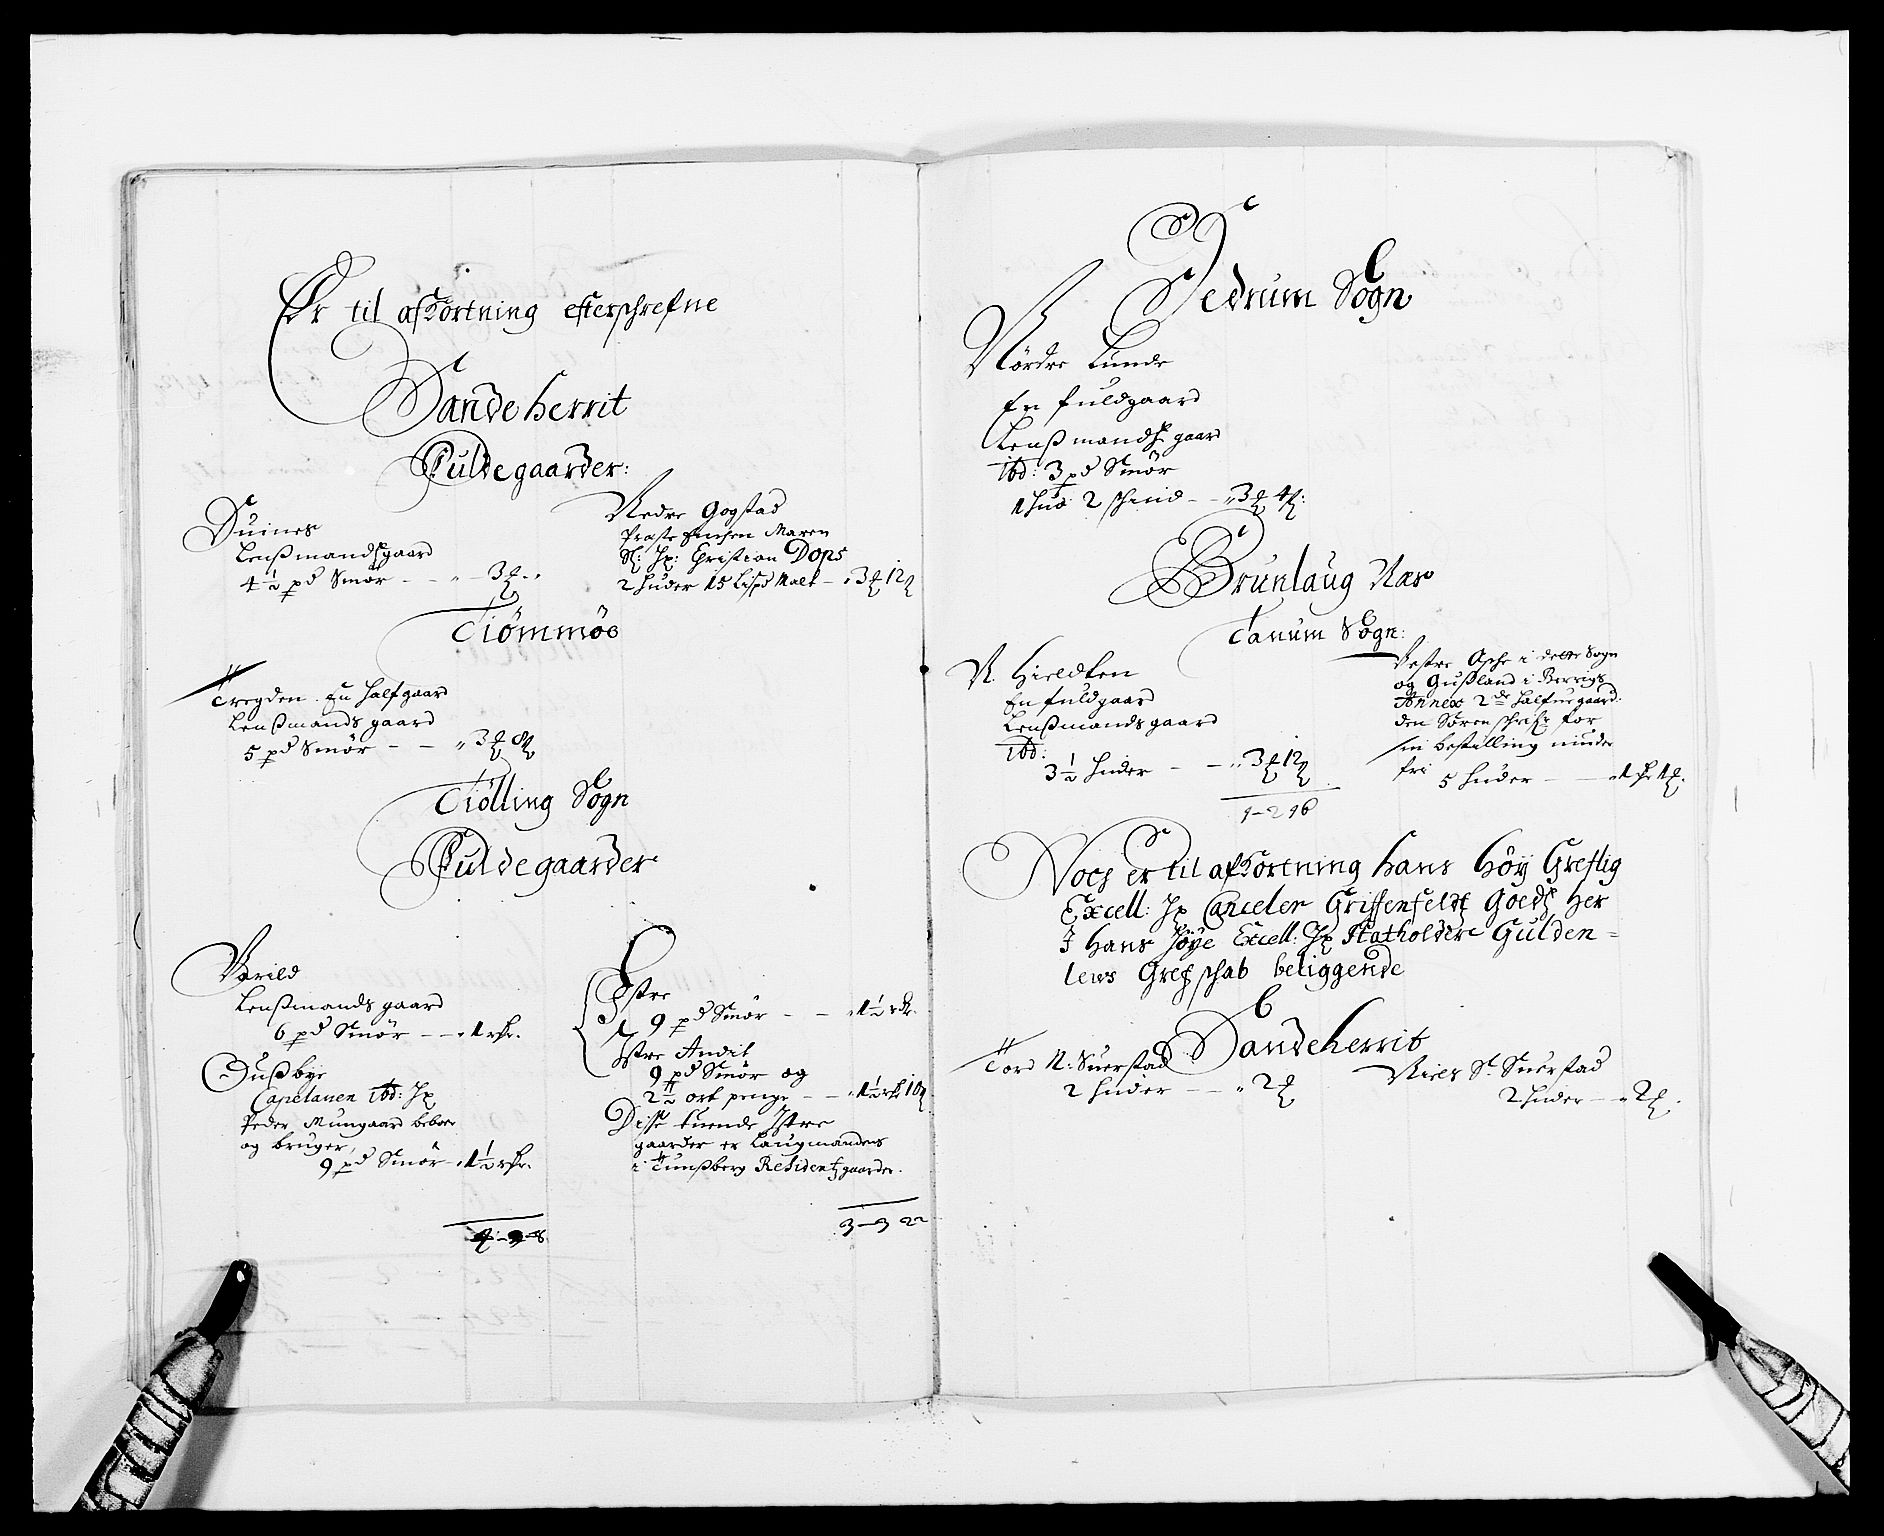 Er til afKortning efterschrefne
Sandeherrit
Fuldegaarder:
Duines
Lenßmandsgaard
4 1/2 pd Smør - - „ - 3
Nedre Gogstad
Præste Enchen Maren
Sl: Hr: Christian Dops
2 huder 15 Lispd Malt - „ 3 12
Tiømmøe
Tregden. En halfgaar
Lenßmands gaard
5 pd Smør - - „ 3 8
Tiølling Sogn
Fuldegaarder
Varild
Lenßmands gaard
6 pd Smør - - „ 1 rdr.
Dußbye
Capelanen Ibd: Hr
Peder Mungaard beboer
og bruger,
9 pd Smør - „ 1 1/2 rdr.
Østre
9 pd Smør - - „ 1 1/2 rdr.
Istre Andit
9 pd Smør og
2 1/2 ort penge - - „ 1 1/2 rdr 10
Disse tuende Istre
gaarder er Laugmandens
i Tunßberg Residentz gaarder.
3-3 22
Sedrum Sogn
Nørdre Lunde
En fuldgaard
Lenßmands gaard
ibd: 3 pd Smør
1 hud 2 schind - - „ 3 4
Brunlaug Næs
Tanum Sogn:
N. Hieldten
En fuldgaard
Lenßmandsgaard
Ibd:
3 1/2 huder - - „ 3 12
1-2 16
Vestre Asche i dette Sogn
og Gußland i Berrigs
Annex 2de halfuegaard:
den Sorenschrifr for
sin bestilling niuder
fri
5 huder - - 1 1
Noch er til afKortning hans høy Greflig
Excell: Hr Canceler Griffenfeldt Goeds her
I hans høye Excell: Hr Statholder Gulden=
lews Grefschab beliggende
Sandeherrit
Tord N: Suerstad
2 huder - - „ 2
Niels St. Suerstad
2 huder - - „ 2